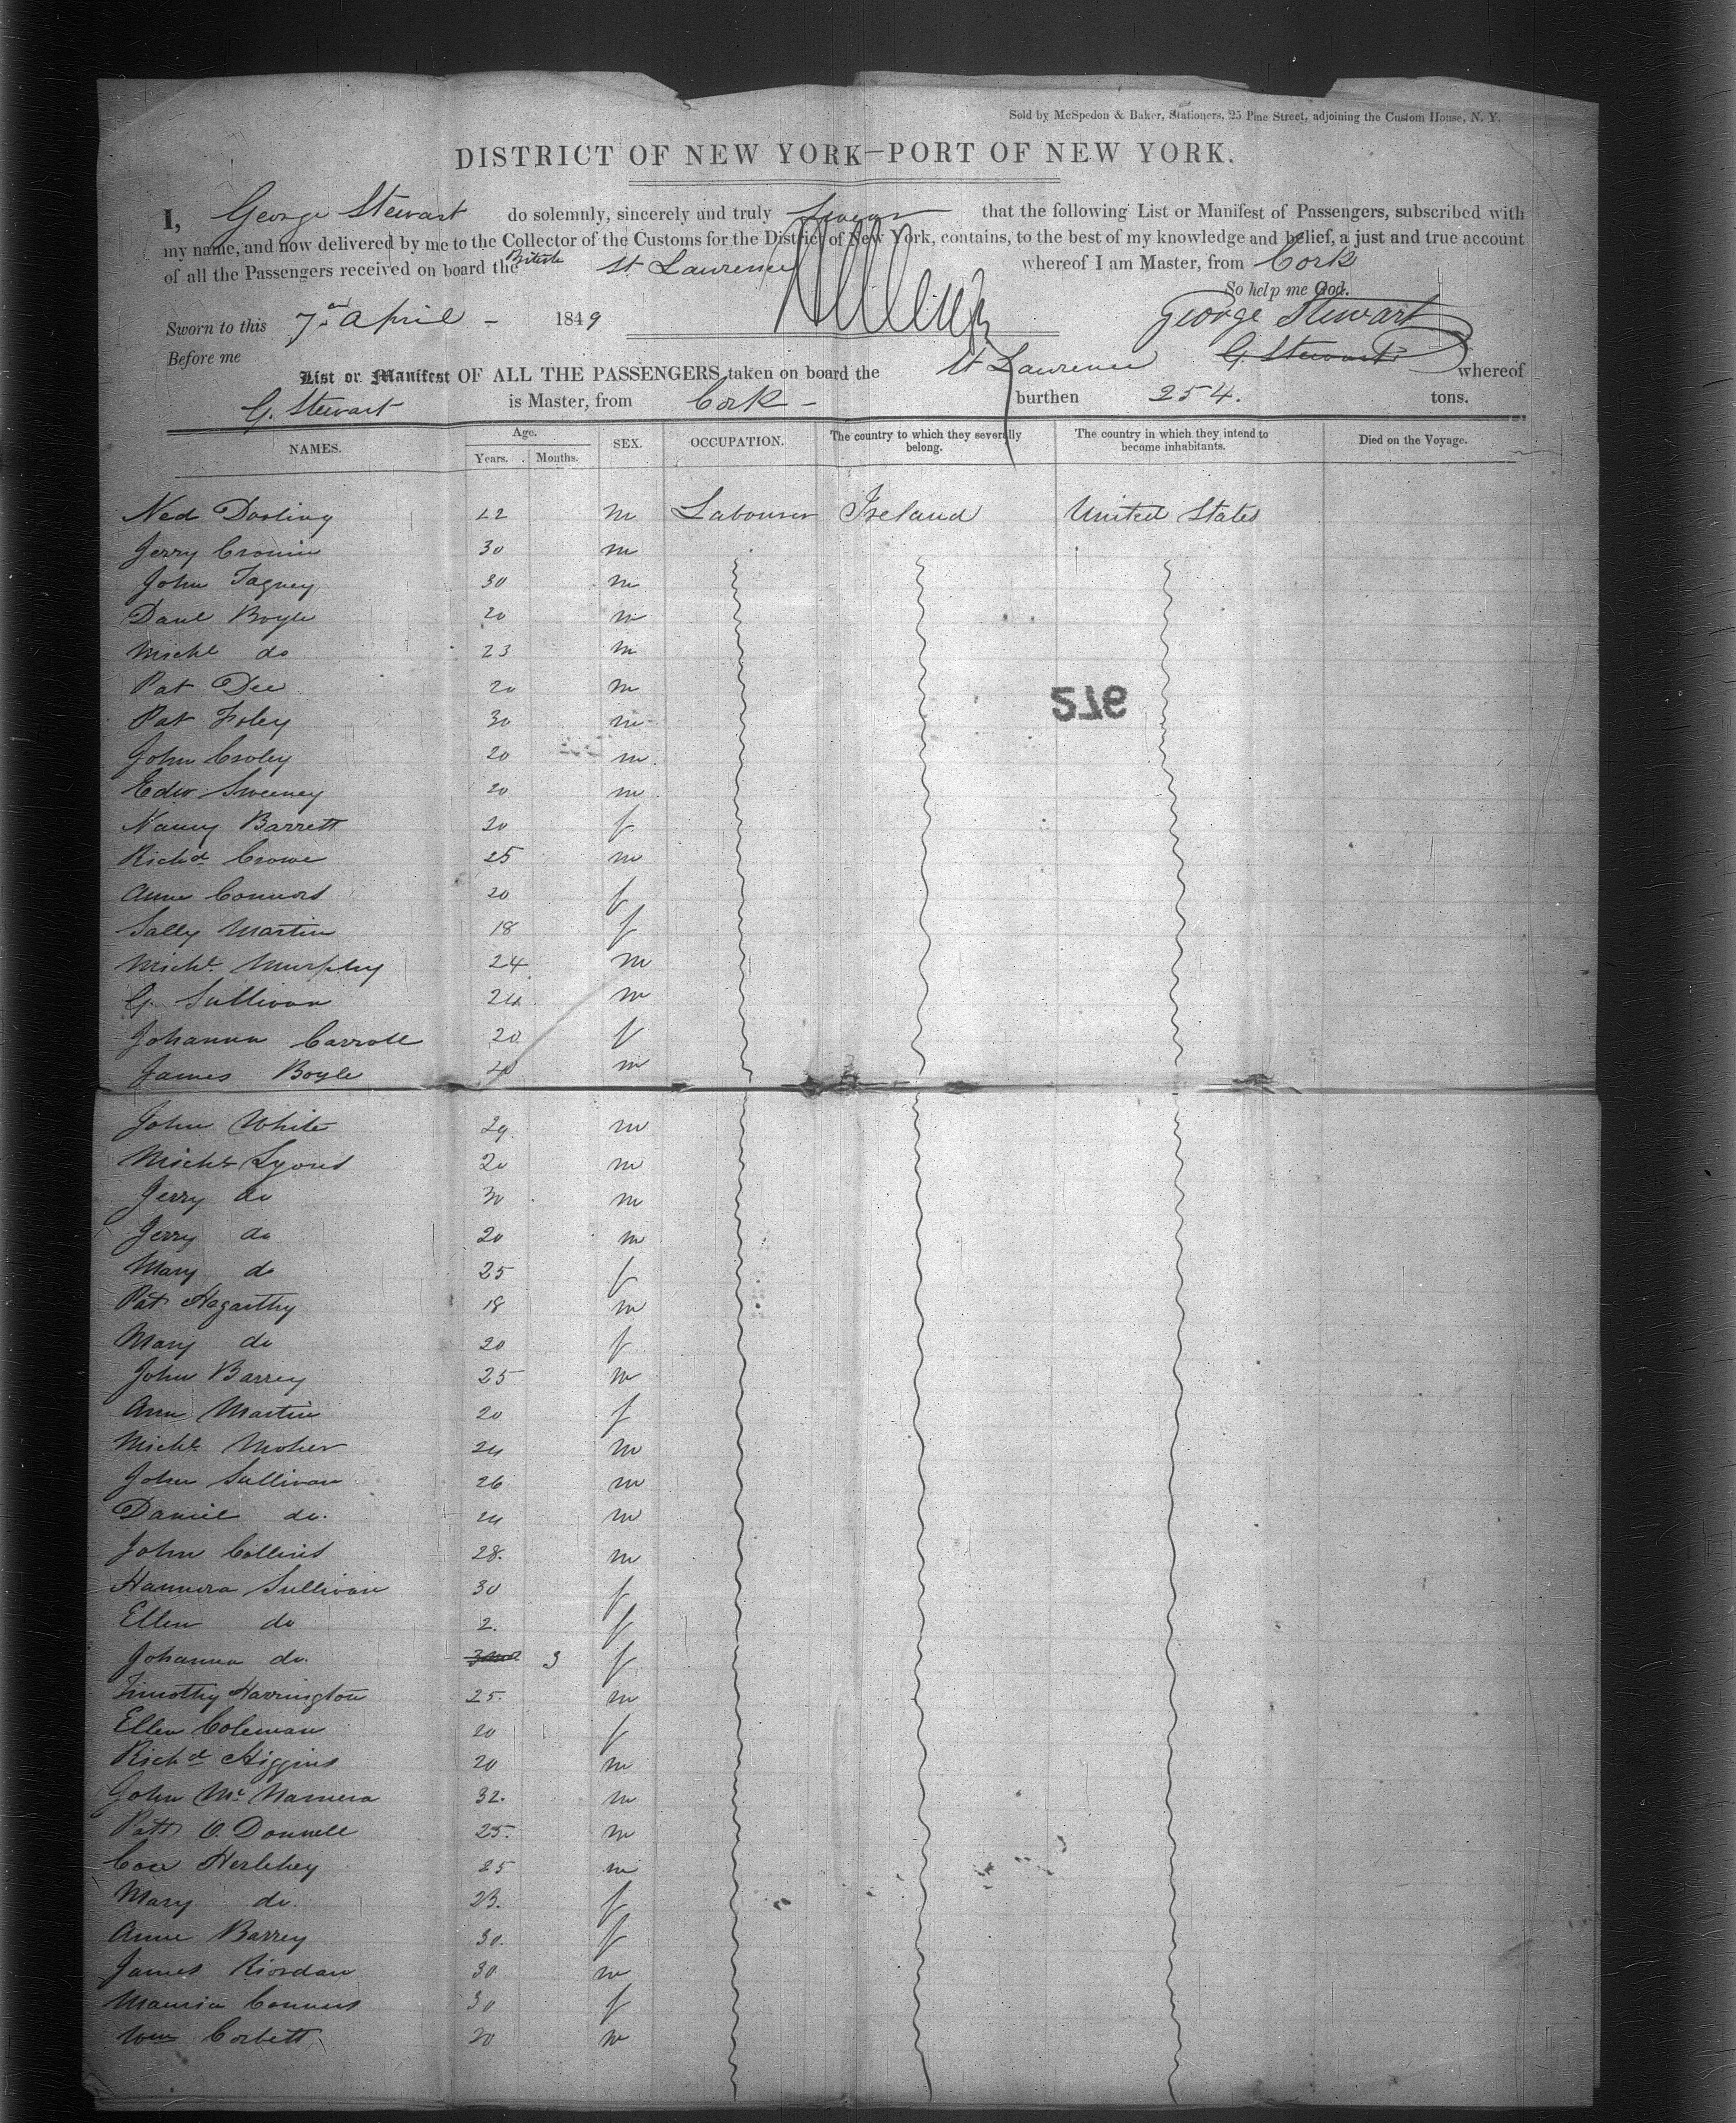 Sold by McSpedon & Baker, Stationers, 25 Pine Street, adjoining the Custom House, N. Y.
DISTRICT OF NEW YORK—PORT OF NEW YORK.
I, George Stewart do solemnly, sincerely and truly Swear that the following List or Manifest of Passengers, subscribed with
my name, and now delivered by me to the Collector of the Customs for the District of New York, contains, to the best of my knowledge and belief, a just and true account
of all the Passengers received on board the St Lawrence whereof I am Master, from Cork
So help me God.
Sworn to this 7 April - 1849 George Stewart
Before me
List or Manifest OF ALL THE PASSENGERS taken on board the St Lawrence G. Stewart whereof
G. Stewart is Master, from Cork - burthen 254. tons.
NAMES. Age. Years. Months. SEX. OCCUPATION. The country to which they severally belong. The country in which they intend to become inhabitants. Died on the Voyage.
Ned Dooling m Labourer Ireland United States
Jerry Cronin 30 m
John Tagney 30 m
Danl Boyle 20 m
Michl do 23 m
Pat Dee 20 m
216
Pat Foley 30 m
John Croley 20 m
Edwr Sweeney 20 m
Nancy Barrett 20 f
Richd Crowe 25 m
Anne Connors 20 f
Sally Martin 18 f
Michl Murphy 24 m
G. Sullivan 24 m
Johanna Carroll 20 f
James Boyle 40 m
John White 29 m
Michl Lyons 20 m
Jerry do 30 m
Jerry do 20 m
Mary do 25 f
Pat Hagarthy 18 m
Mary do 20 f
John Barrey 25 m
Ann Martin 20 f
Michl Moher 24 m
John Sullivan 26 m
Daniel do. 24 m
John Collins 28. m
Hannora Sullivan 30 f
Ellen do 2. f
Johanna do. 3 f
Timothy Harrington 25. m
Ellen Coleman 20 f
Richd Higgins 20 m
John Mc Namera 32. m
Patt O. Donnell 25. m
Con Herlihey 25 m
Mary do. 23. f
Anne Barrey 30. f
James Riordan 30 m
Connors 30 f
Wm Corbett 20 m